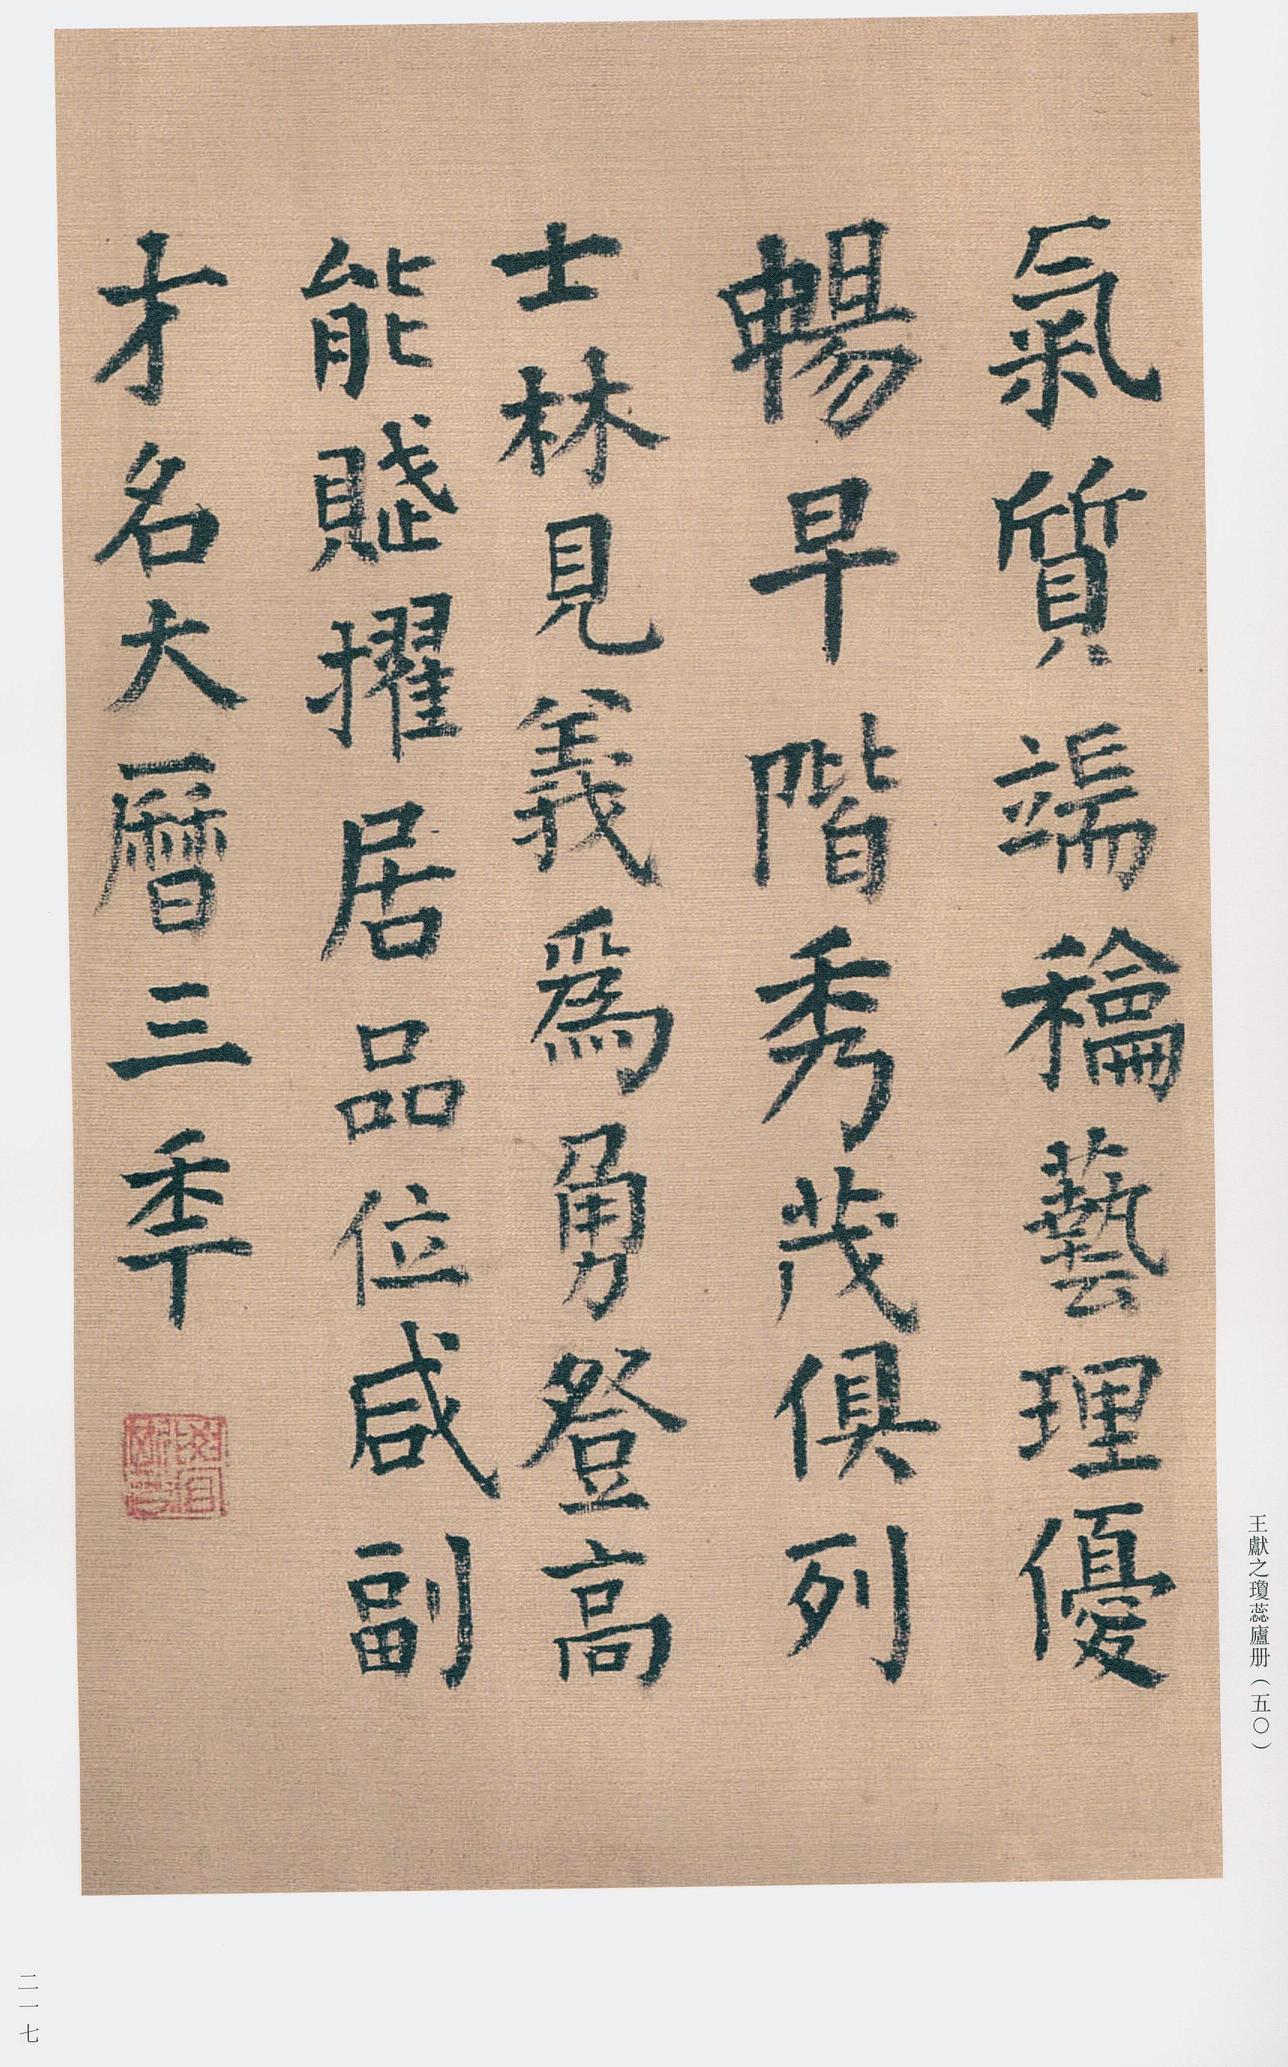 氣質端龢藝理優
暢早階秀茂俱列
士林見義爲勇登高
能賦擢居品位咸副
才名大曆三季
王獻之瓊蕊廬册（五〇）
二一七